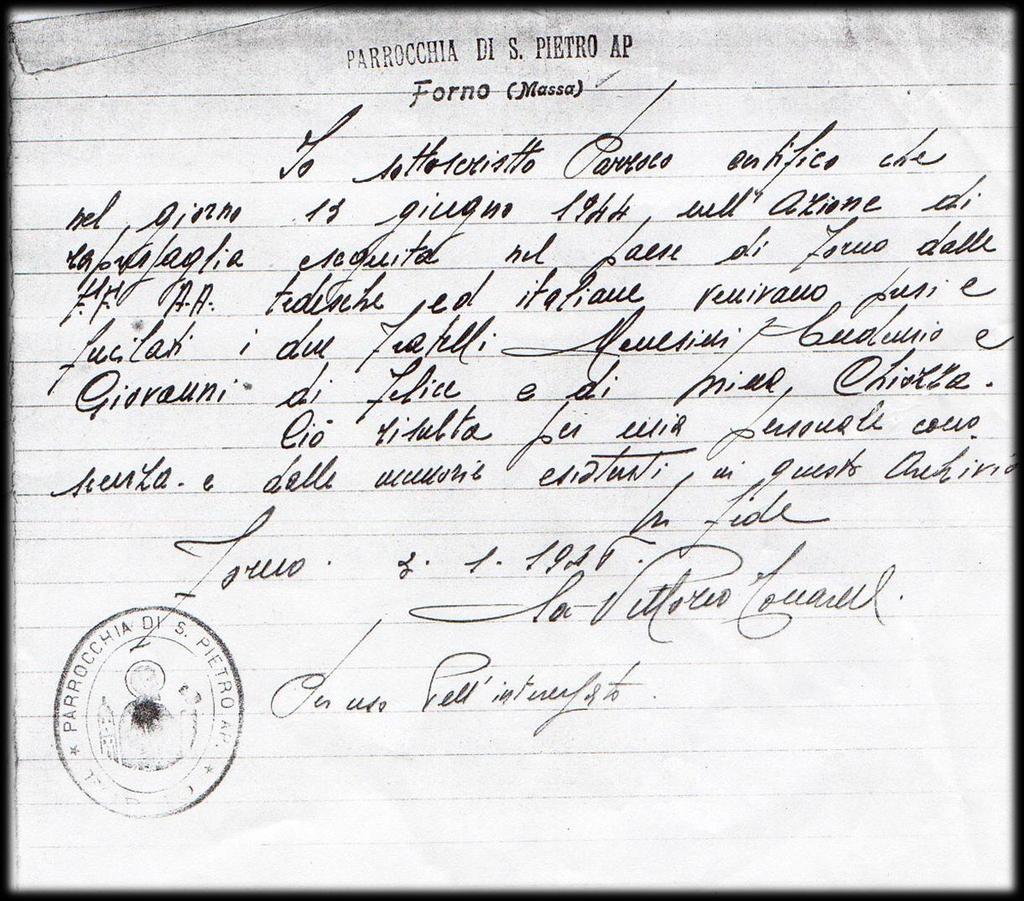 PARROCCHIA DI S. PIETRO AP
Forno (Massa)
Io sottoscritto Parroco certifico che
nel giorno 13 giugno 1944, nell'Azione di
rappresaglia eseguita nel paese di Forno dalle
F.F. A.A. tedesche ed italiane venivano presi e
fucilati i due Fratelli e
Giovanni di Felice e di Chiozza.
Ciò risulta per mia personale cono
scenza. e dalle memorie esistenti in questo Archivio
In fede
Forno. 3. 1.
Vittorio
Per uso dell'interessato.
* PARROCCHIA DI S. PIETRO AP. *